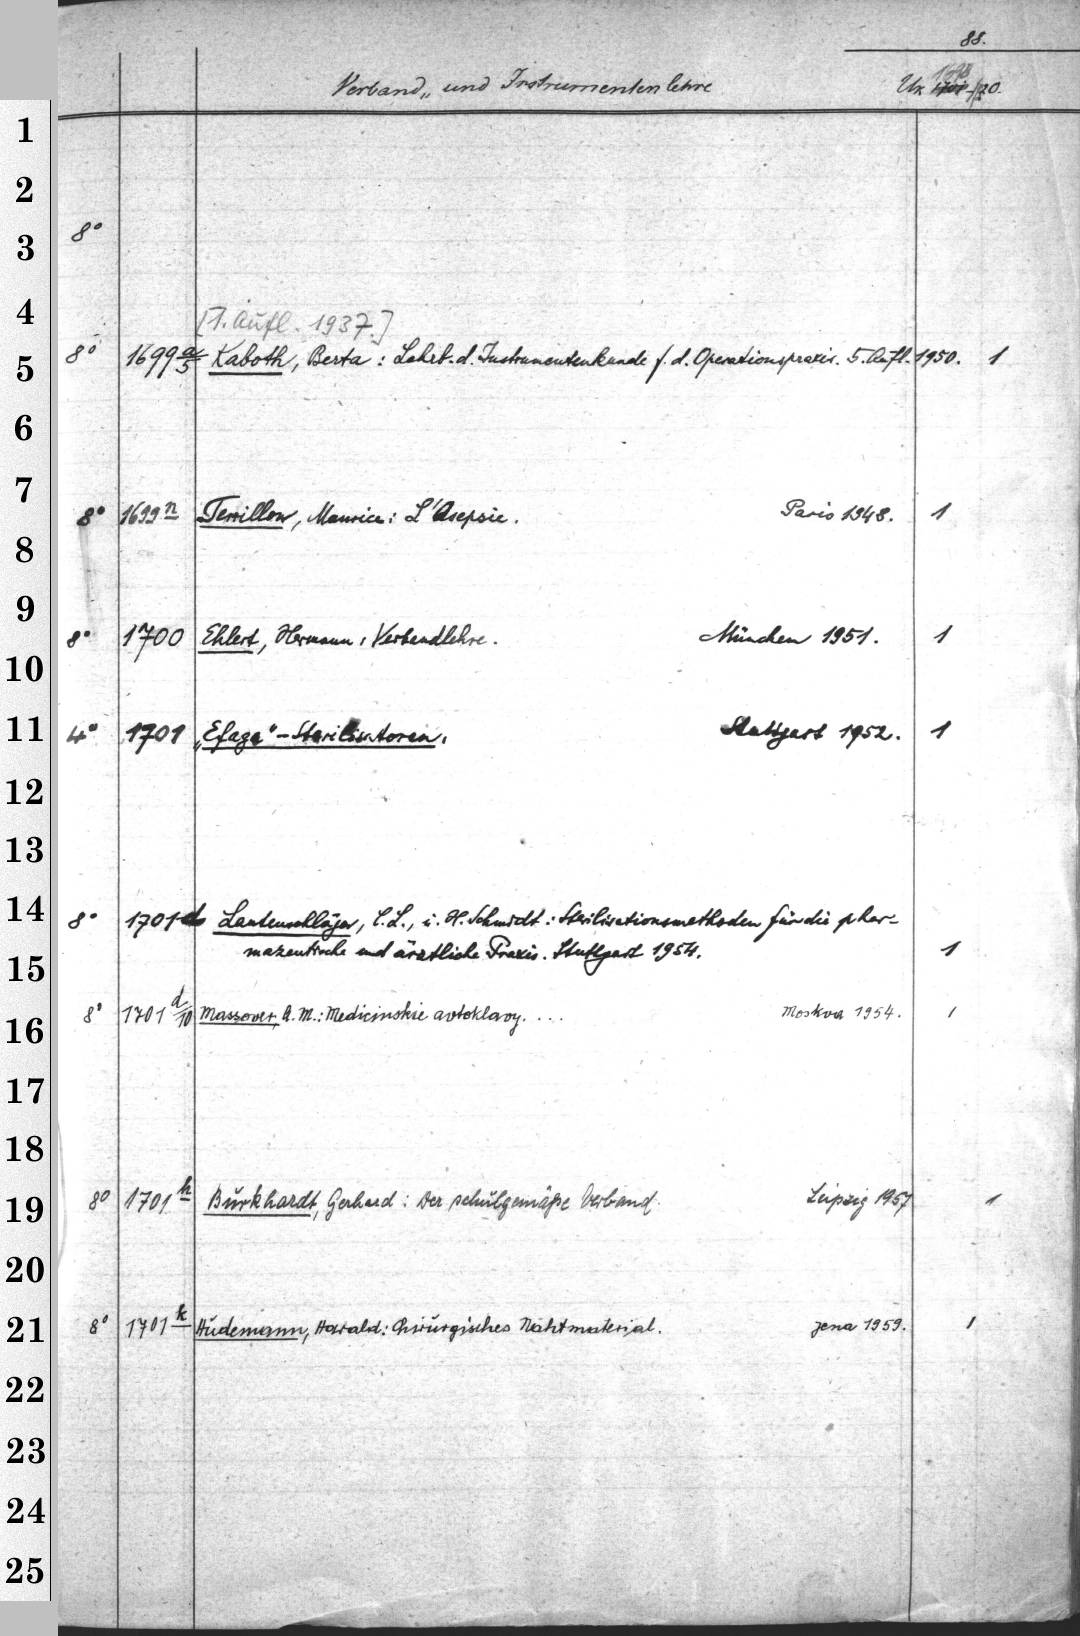 88.
Verband„ und Instrumentenlehre
Ux 1698 -1720.
1
2
3
8°
4
[1. Aufl. 1937.]
5
8° 1699 a/5 Kaboth, Berta: Lehrb. d. Instrumentenkunde f. d. Operationspraxis. 5. Aufl. 1950. 1
6
7
8° 1699 n Terrillon, Maurice: L'Asepsie. Paris 1948. 1
8
9
8° 1700 Ehlert, Hermann: Verbandlehre. München 1951. 1
10
11
4° 1701 „Efaga"-Sterilisatoren. Stuttgart 1952. 1
12
13
14
8° 1701 d Lautenschläger, C.L., u. H. Schmidt: Sterilisationsmethoden für die phar-
mazeutische und ärztliche Praxis. Stuttgart 1954. 1
15
8° 1701 d/10 Massover, A. M.: Medicinskie avtoklavy. ... Moskva 1954. 1
16
17
18
8° 1701 h Burkhardt, Gerhard: Der schulgemäße Verband. Leipzig 1957 1
19
20
8° 1701 k Hudemann, Harald: Chirurgisches Nahtmaterial. Jena 1959. 1
21
22
23
24
25